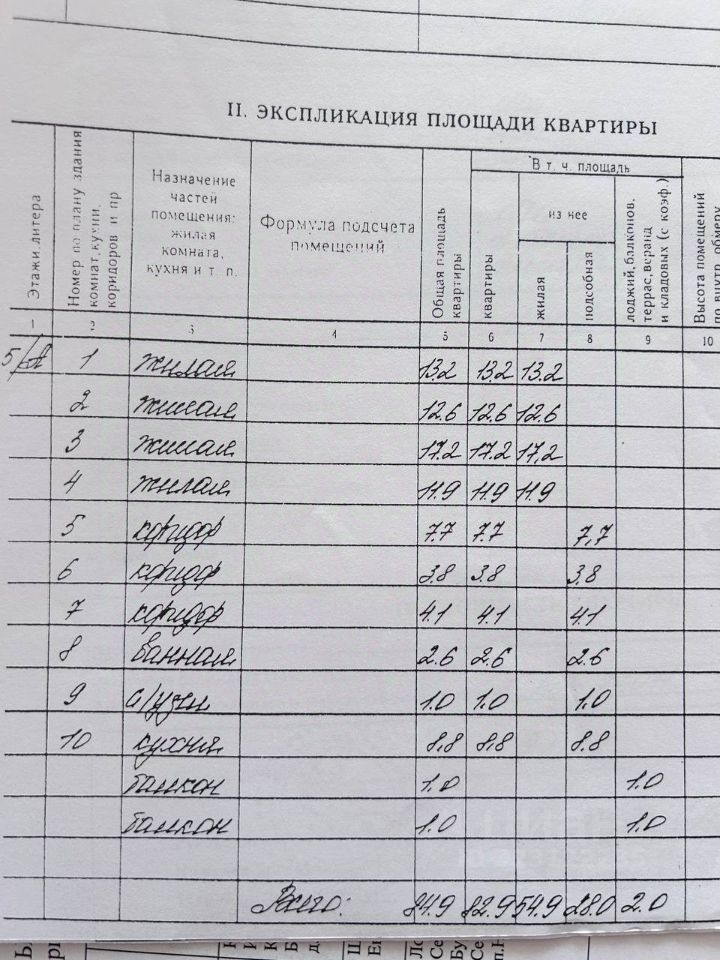 II. ЭКСПЛИКАЦИЯ ПЛОЩАДИ КВАРТИРЫ
Этажи, литера
Номер по плану здания комнат, кухни, коридоров и пр
Назначение частей помещения: жилая комната, кухня и т. п.
Формула подсчета помещений
Общая площадь квартиры
В т. ч. площадь
квартиры
из нее
жилая
подсобная
лоджий, балконов, террас, веранд и кладовых (с коэф.)
Высота помещений по внутр. обмеру
1 2 3 4 5 6 7 8 9 10
5/А 1 жилая 13.2 13.2 13.2
2 жилая 12.6 12.6 12.6
3 жилая 17.2 17.2 17,2
4 жилая 11.9 11.9 11.9
5 коридор 7.7 7.7 7,7
6 коридор 3.8 3.8 3.8
7 коридор 4.1 4.1 4.1
8 ванная 2.6 2.6 2.6
9 с/узел 1.0 1.0 1.0
10 кухня 8,8 8,8 8.8
балкон 1.0 1.0
балкон 1.0 1.0
Всего: 84.9 82.9 54.9 28.0 2.0